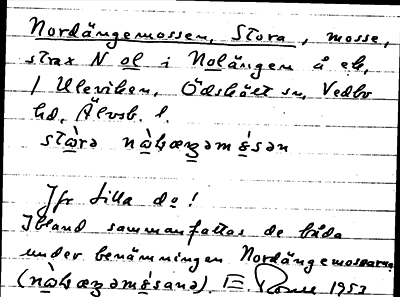 Nordängemossen, Stora, mosse,
strax N ol i Nolängen å ek,
/ Uleviken, Ödskölt sn, Vedbo
hd, Älvsb. l.
stɷ̀rə nɷ̀ɧæʒəmɛ́sən
Jfr Lilla do!
Ibland sammanfattas de båda
under benämningen Nordängemossarna
(nɷ̀ɧæʒəmɛ́sanə). E. 1953